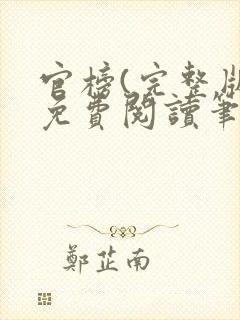 官榜(完整版
免費閱讀筆
鄭芷南